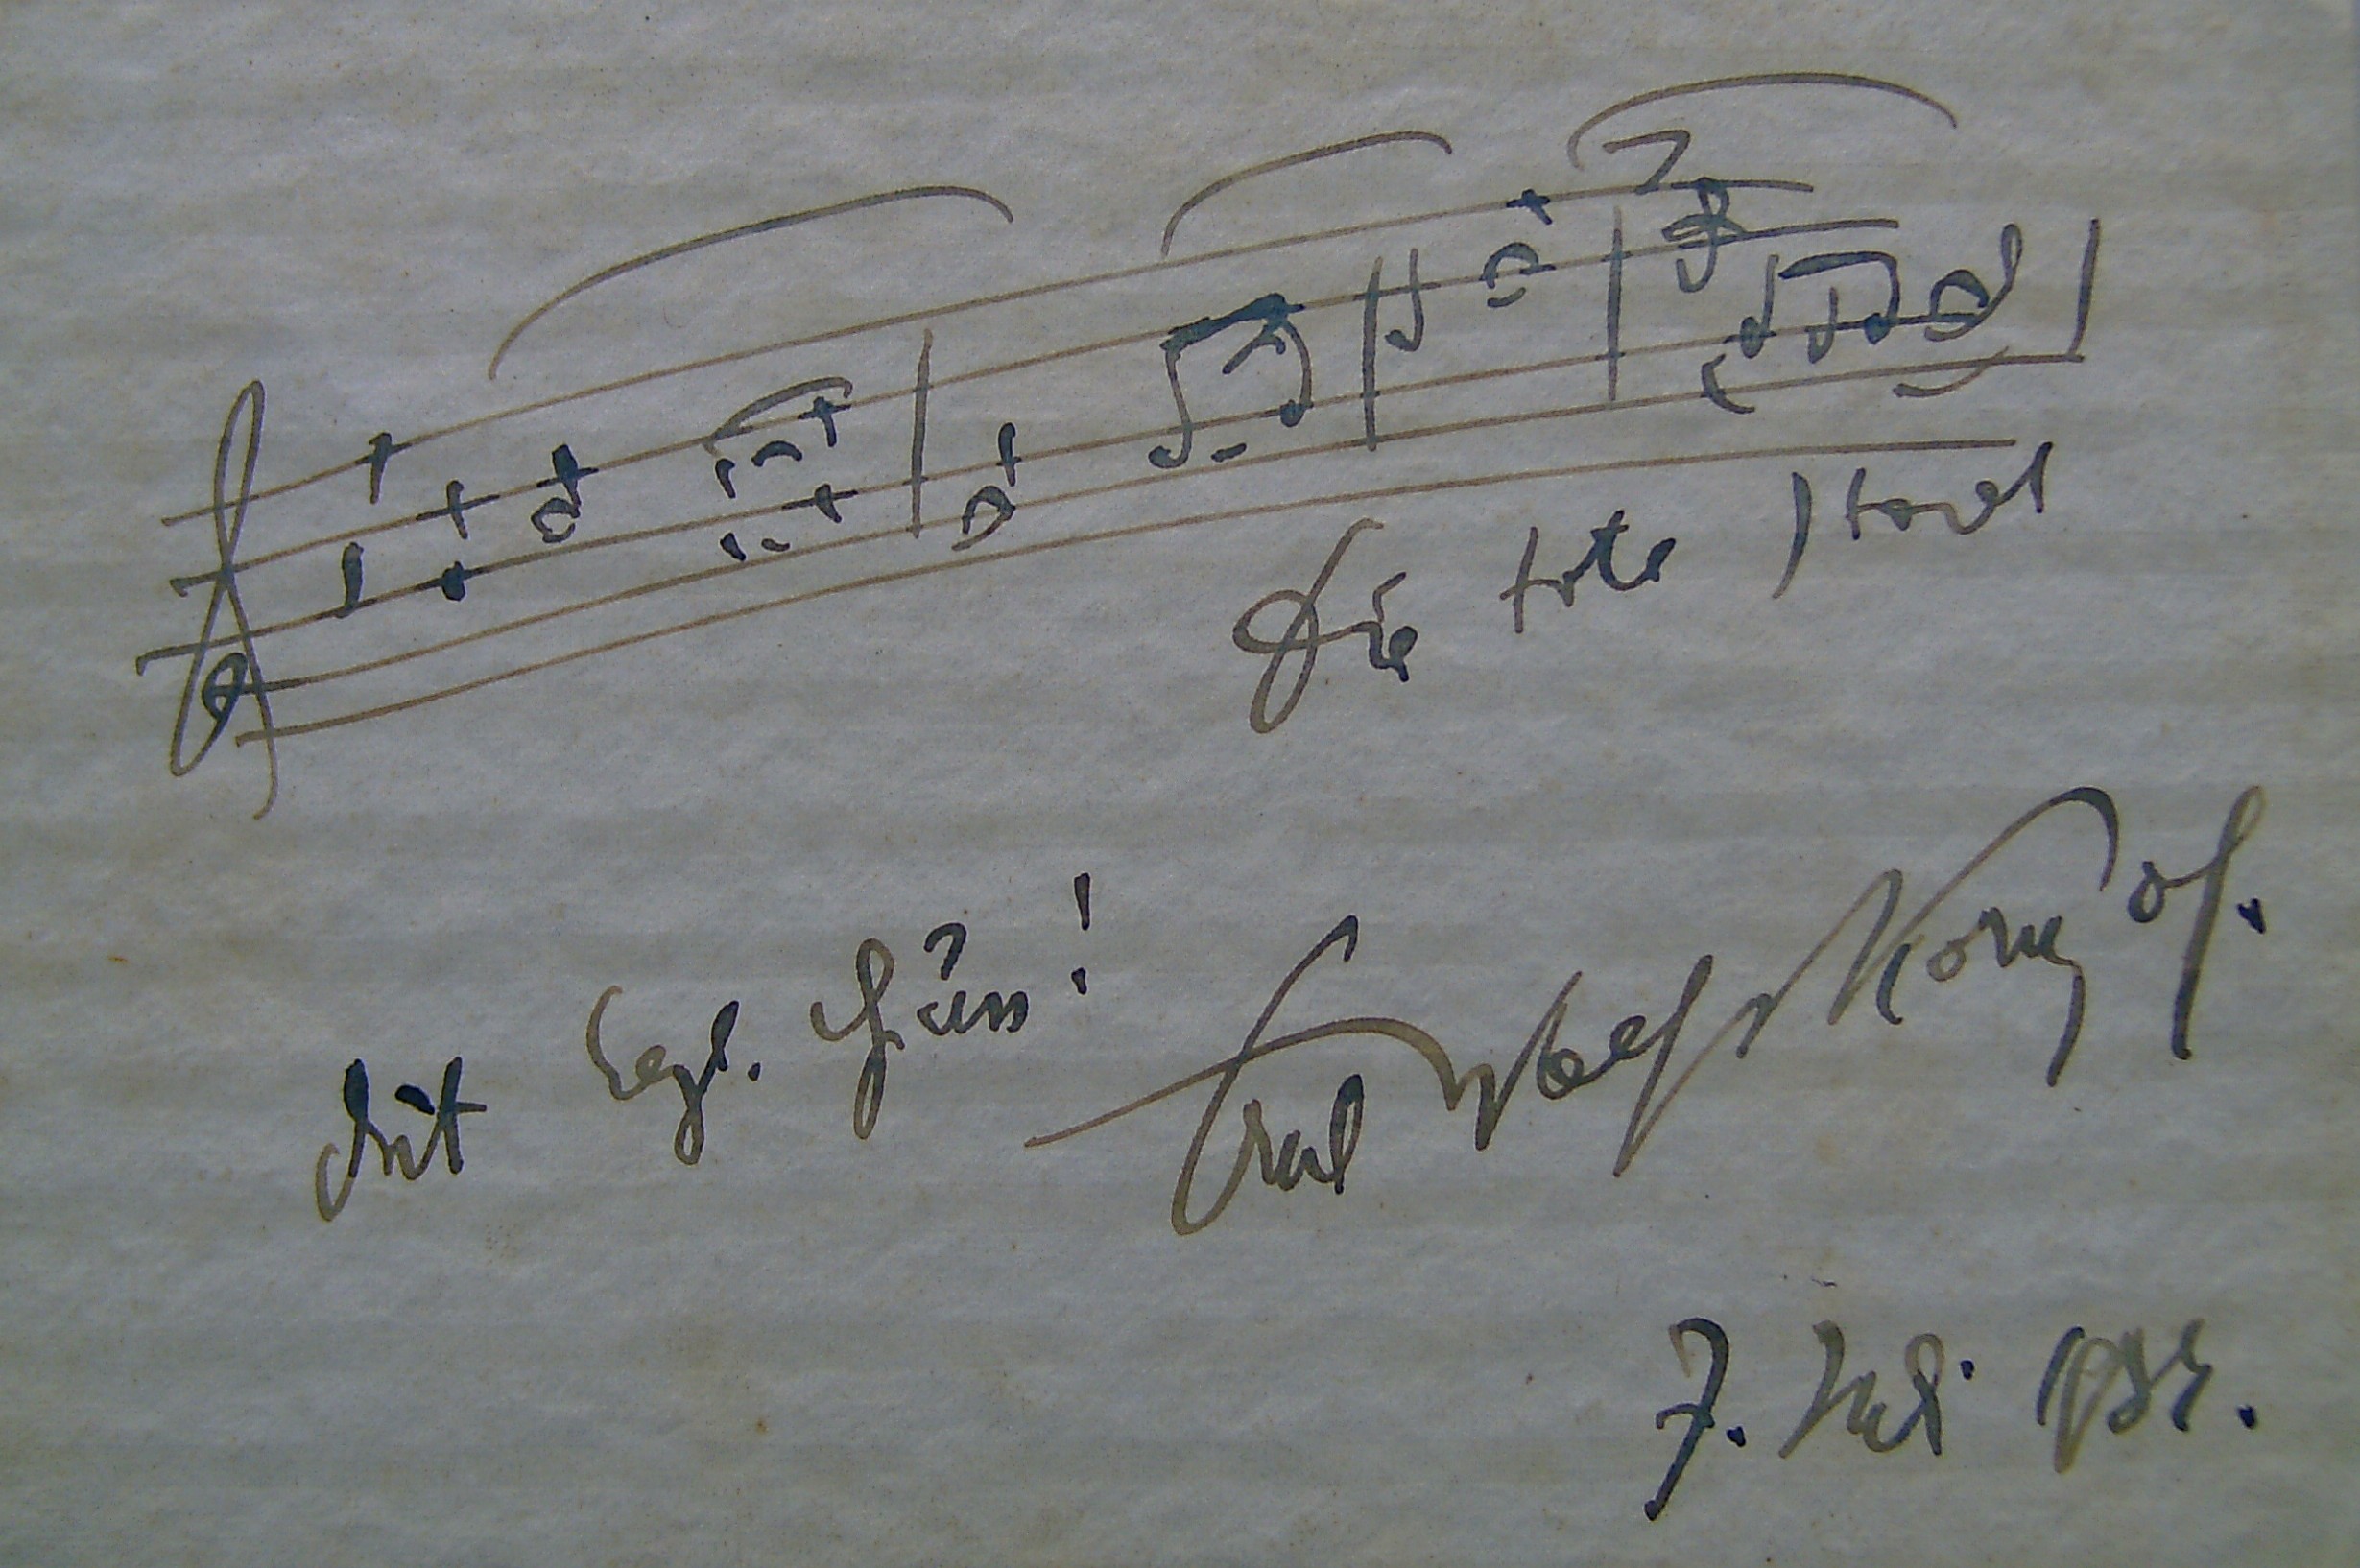 Die tote Stadt
Mit herzl. Grüßen!
Erich Wolfgang Korngold.
7. Juli